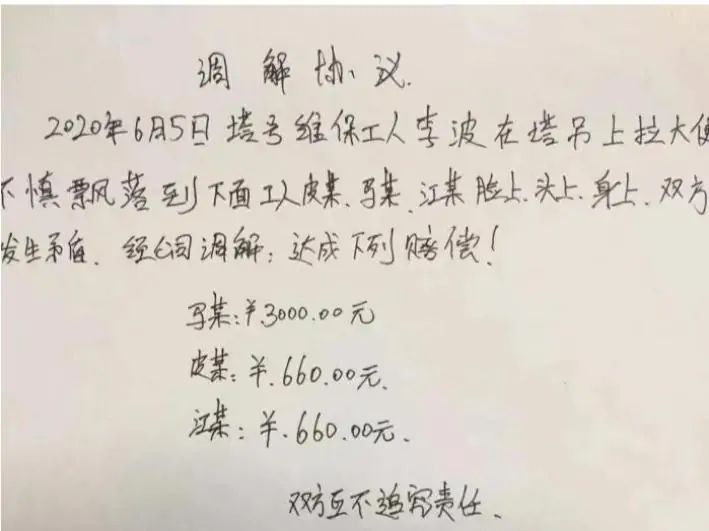 调解协议.
2020年6月5日塔号维保工人李波在塔吊上拉大便
不慎飘落到下面工人皮某、马某、江某脸上、头上、身上、双方
发生矛盾、经公司调解：达成下列赔偿！
马某：¥.3000.00元
皮某：¥.660.00元.
江某：¥.660.00元.
双方互不追究责任.